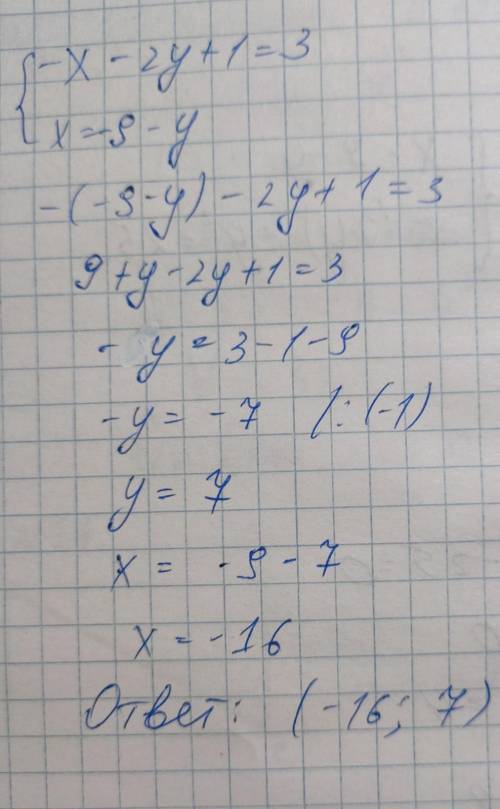 { -x - 2y + 1 = 3
x = -9 - y
-(-9-y) - 2y + 1 = 3
9 + y - 2y + 1 = 3
- y = 3 - 1 - 9
-y = -7 /: (-1)
y = 7
x = -9 - 7
x = -16
Ответ: (-16; 7)